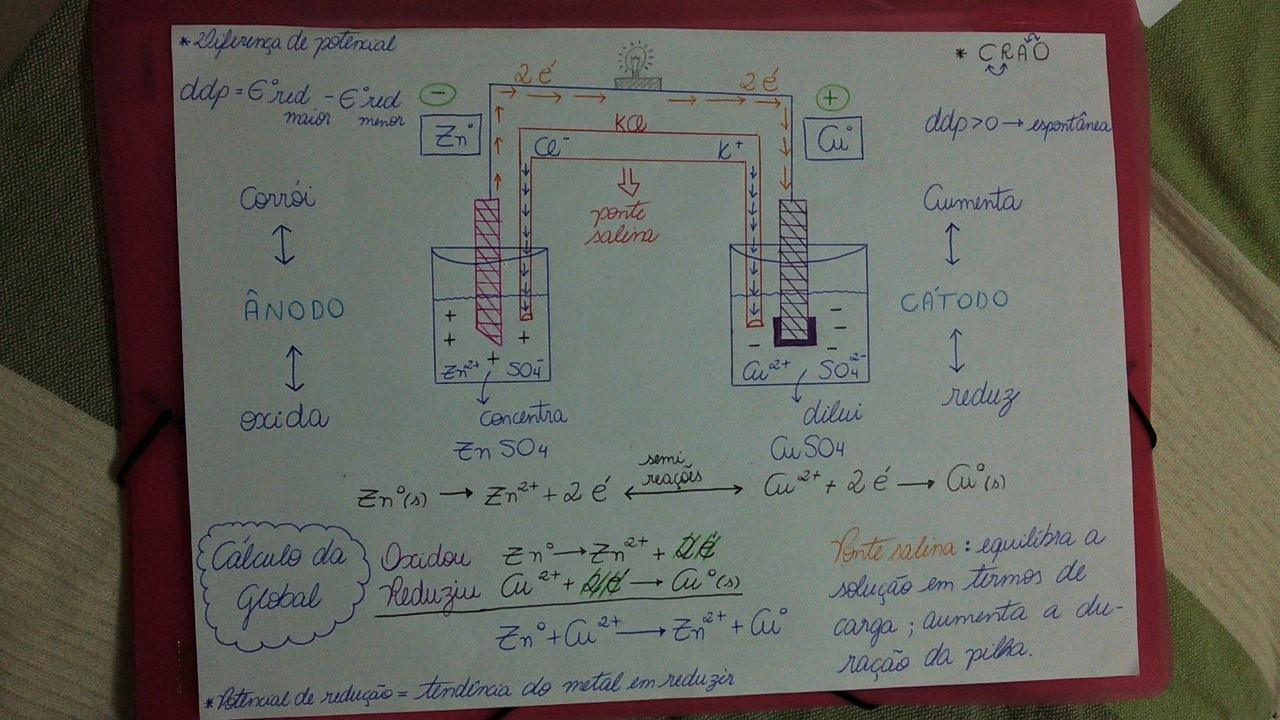 * Diferença de potencial
ddp = E°red maior - E°red menor
* CRAO
ddp > 0 → espontânea
2 é
2 é
-
+
Zn°
Cu°
KCl
Cl⁻
K⁺
ponte
salina
Corrói
ÂNODO
oxida
Aumenta
CÁTODO
reduz
+ + + +
Zn²⁺ SO₄⁻
- - - -
Cu²⁺ SO₄²⁻
concentra
ZnSO₄
dilui
CuSO₄
Zn°(s) → Zn²⁺ + 2 é
semi
reações
Cu²⁺ + 2 é → Cu°(s)
Cálculo da
Global
Oxidou Zn° → Zn²⁺ + 2é
Reduziu Cu²⁺ + 2é → Cu°(s)
Zn° + Cu²⁺ → Zn²⁺ + Cu°
Ponte salina : equilibra a
solução em termos de
carga ; aumenta a du-
ração da pilha.
* Potencial de redução = tendência do metal em reduzir